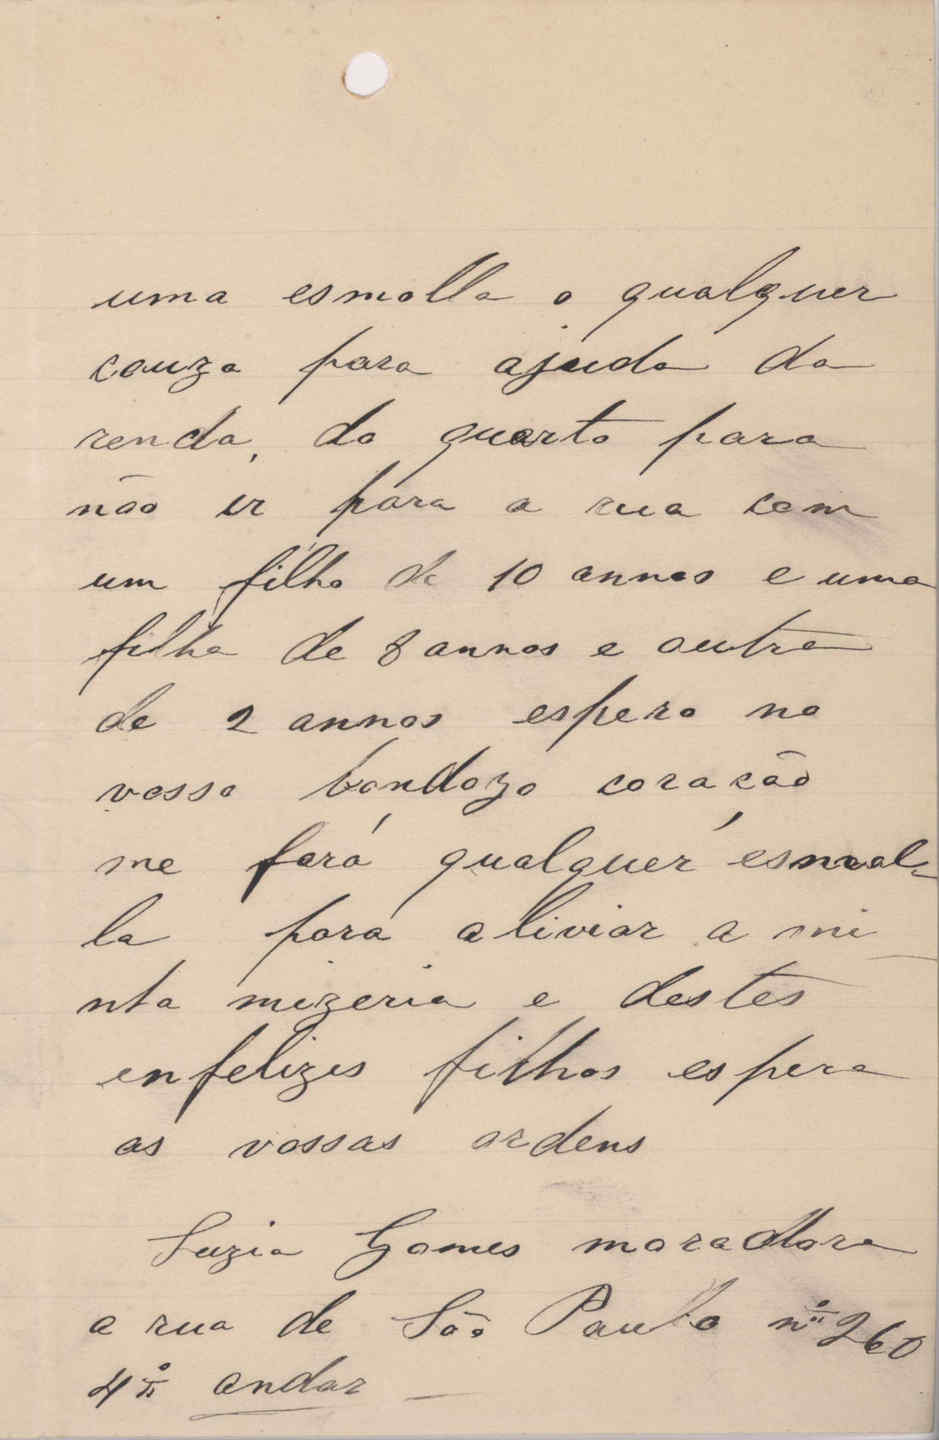 uma esmolla o qualquer
couza para ajuda da
renda, do quarto para
não ir para a rua com
um filho de 10 annos e uma
filha de 8 annos e outra
de 2 annos espero no
vosso bondozo coração
me fará qualquer esmol-
la para aliviar a mi
nha mizeria e destes
enfelizes filhos espera
as vossas ordens
Luzia Gomes moradora
a rua de São Paulo nº 260
4º andar